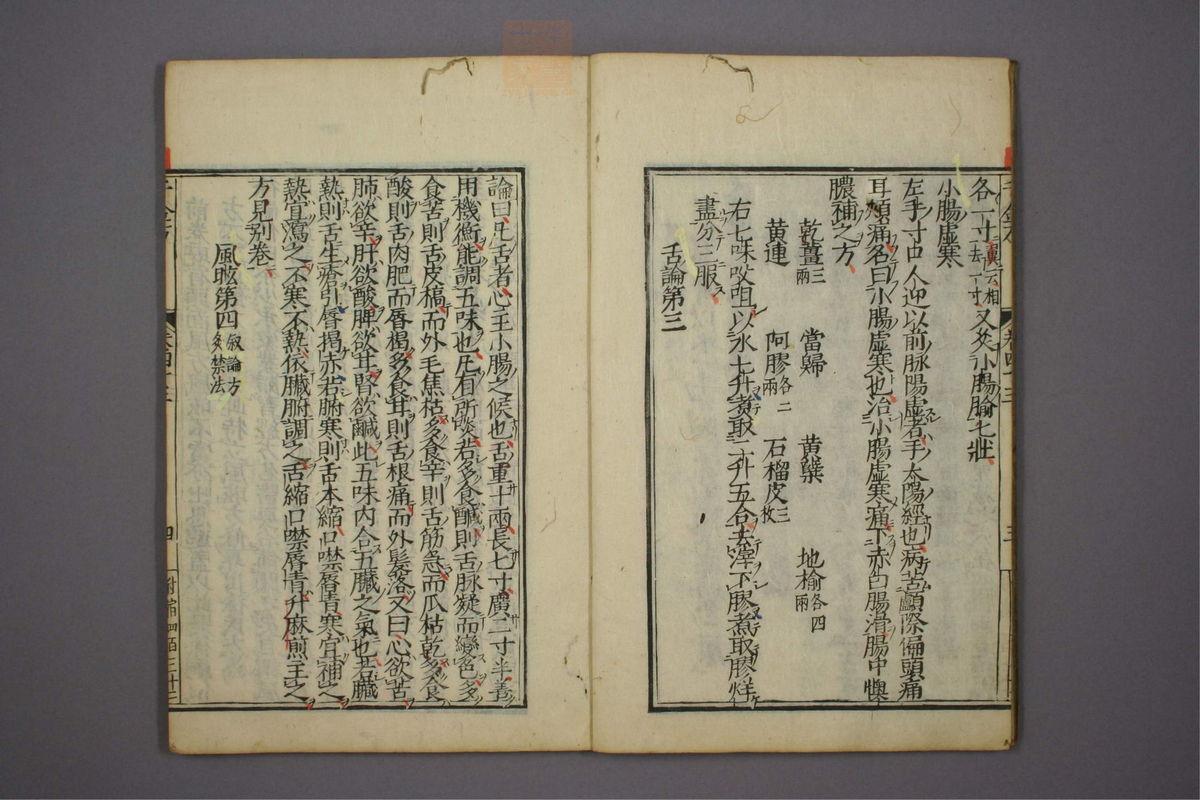 各一寸翼云相去一寸又灸小腸腧七壯
小腸虛寒
左手寸口人迎以前脉陽虛者手太陽經也病苦顱際偏頭痛
耳頰痛名曰小腸虛寒也治小腸虛寒痛下赤白腸滑腸中懊
膿補之方
乾薑三兩 當歸 黃蘗 地榆各四兩
黃連 阿膠各二兩 石榴皮三枚
右七味㕮咀以水七升煮取二升五合去滓下膠煮取膠烊
盡分三服
舌論第三
論曰凡舌者心主小腸之候也舌重十兩長七寸廣二寸半善
用機衡能調五味也凡有所啖若多食鹹則舌脉凝而變色多
食苦則舌皮槁而外毛焦枯多食辛則舌筋急而爪枯乾多食
酸則舌肉肥而唇揭多食甘則舌根痛而外髮落又曰心欲苦
肺欲辛肝欲酸脾欲甘腎欲鹹此五味內合五臟之氣也若臟
熱則舌生瘡引唇揭赤若腑寒則舌本縮口噤唇青寒宜補之
熱宜瀉之不寒不熱依臟腑調之舌縮口噤唇青升麻煎主之
方見別卷
風眩第四叙論方灸禁法